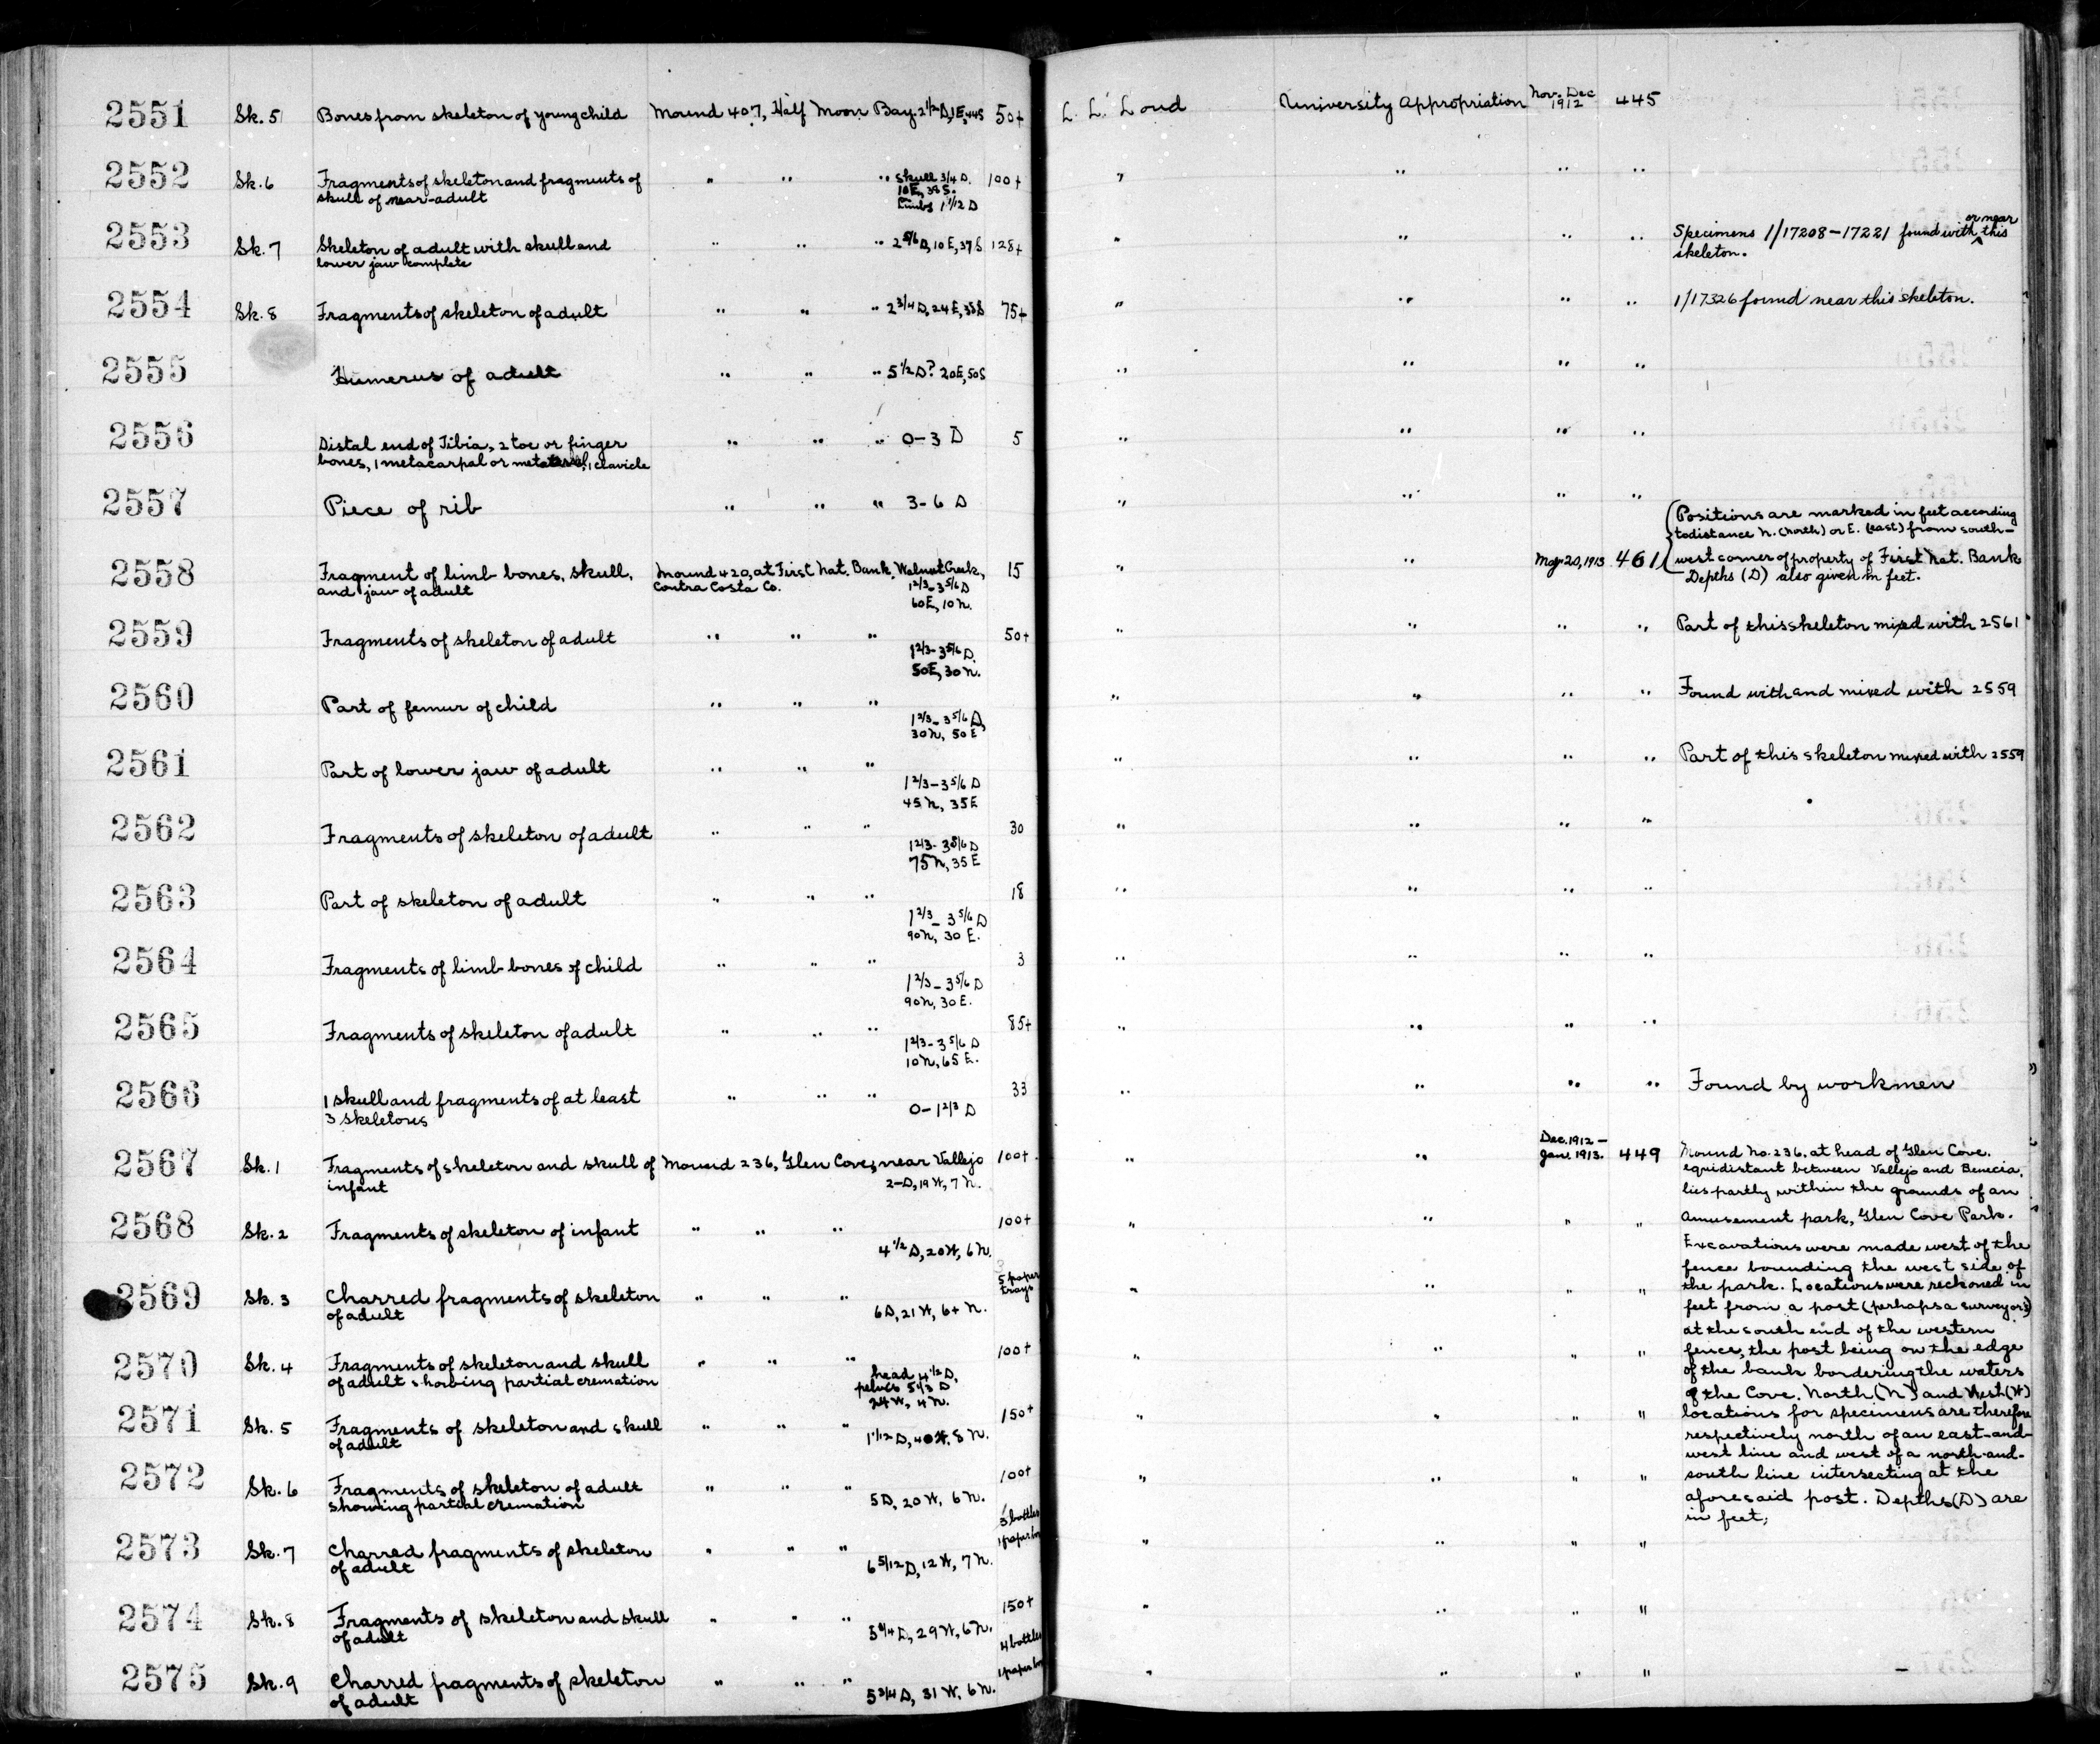 2551 Sk. 5 Bones from skeleton of young child Mound 407, Half Moon Bay 2 1/2 D, 1E, 44S 50+ L. L. Loud University Appropriation Nov.-Dec 1912 445
2552 Sk. 6 Fragments of skeleton and fragments of " " " skull 3/4 D. 100+ " " " "
skull of near-adult 10E, 38S.
Limbs 1 1/12 D
2553 Sk. 7 Skeleton of adult with skull and " " " 2 5/6 D, 10E, 37S 128+ " " " " Specimens 1/17208-17221 found with or near this
lower jaw complete skeleton.
2554 Sk. 8 Fragments of skeleton of adult " " " 2 3/4 D, 24E, 38S 75+ " " " " 1/17326 found near this skeleton.
2555 Humerus of adult " " " 5 1/2 D? 20E, 50S " " " "
2556 Distal end of Tibia, 2 toe or finger " " " 0-3 D 5 " " " "
bones, 1 metacarpal or metatarsal, 1 clavicle
2557 Piece of rib " " " 3-6 D " " " "
(Positions are marked in feet according
to distance N. (north) or E. (east) from south-
2558 Fragment of limb bones, skull, Mound 420, at First Nat. Bank, Walnut Creek, 15 " " May 20, 1913 461 west corner of property of First Nat. Bank
and jaw of adult Contra Costa Co. 1 2/3-3 5/6 D Depths (D) also given in feet.
60E, 10N.
2559 Fragments of skeleton of adult " " " 50+ " " " " Part of this skeleton mixed with 2561
1 2/3-3 5/6 D.
50E, 30N.
2560 Part of femur of child " " " " " " " Found with and mixed with 2559
1 2/3-3 5/6 D,
30N, 50E
2561 Part of lower jaw of adult " " " " " " " Part of this skeleton mixed with 2559
1 2/3-3 5/6 D
45N, 35E
2562 Fragments of skeleton of adult " " " 30 " " " "
1 2/3-3 5/6 D
75N, 35E
2563 Part of skeleton of adult " " " 18 " " " "
1 2/3-3 5/6 D
90N, 30E.
2564 Fragments of limb bones of child " " " 3 " " " "
1 2/3-3 5/6 D
90N, 30E.
2565 Fragments of skeleton of adult " " " 85+ " " " "
1 2/3-3 5/6 D
10N, 65E.
2566 1 skull and fragments of at least " " " 33 " " " " Found by workmen
3 skeletons 0-1 2/3 D
2567 Sk. 1 Fragments of skeleton and skull of Mound 236, Glen Cove, near Vallejo 100+ " " Dec. 1912- Jan. 1913. 449 Mound No. 236, at head of Glen Cove.
infant 2-D, 19W, 7N. equidistant between Vallejo and Benecia,
lies partly within the grounds of an
2568 Sk. 2 Fragments of skeleton of infant " " " 100+ " " " " amusement park, Glen Cove Park.
4 1/2 D, 20W, 6N. Excavations were made west of the
fence bounding the west side of
2569 Sk. 3 Charred fragments of skeleton " " " 5 paper trays " " " " the park. Locations were reckoned in
of adult 6D, 21W, 6+N. feet from a post (perhaps a surveyor's)
at the south end of the western
2570 Sk. 4 Fragments of skeleton and skull " " " 100+ " " " " fence, the post being on the edge
of adult showing partial cremation head 4 1/2 D, of the bank bordering the waters
pelvis 5 1/3 D of the Cove. North (N) and West (W)
24W, 4N.
2571 Sk. 5 Fragments of skeleton and skull " " " 150+ " " " " locations for specimens are therefore
of adult 1 1/12 D, 40W, 8N. respectively north of an east-and-
west line and west of a north-and-
2572 Sk. 6 Fragments of skeleton of adult " " " 100+ " " " " south line intersecting at the
showing partial cremation 5D, 20W, 6N. aforesaid post. Depths (D) are
in feet;
2573 Sk. 7 Charred fragments of skeleton " " " 3 bottles 1 paper " " " "
of adult 6 5/12 D, 12W, 7N.
2574 Sk. 8 Fragments of skeleton and skull " " " 150+ " " " "
of adult 5 3/4 D, 29W, 6N.
2575 Sk. 9 Charred fragments of skeleton " " " 4 bottles 1 paper " " " " -
of adult 5 3/4 D, 31W, 6N.